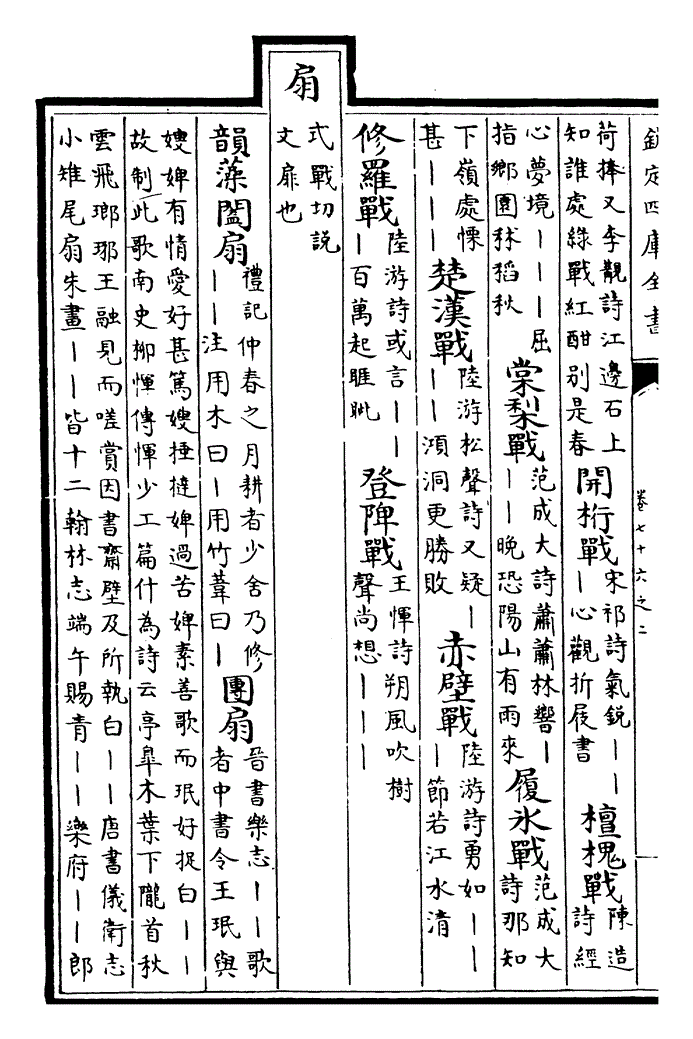 欽定四庫全書 卷七十六之二
荷捧又李覯詩江邊石上
知誰處綠戰紅酣别是春
開桁戰
宋祁詩氣銳｜｜
｜心觀折屐書
檀槐戰
陳造
詩經
心夢境｜｜｜屈
指鄉園秫稻秋
棠梨戰
范成大詩蕭蕭林響｜
｜｜晚恐陽山有雨來
履氷戰
范成大
詩那知
下嶺處慄
甚｜｜｜
楚漢戰
陸游松聲詩又疑｜
｜｜澒洞更勝敗
赤壁戰
陸游詩勇如｜｜
｜節若江水清
修羅戰
陸游詩或言｜｜
｜百萬起睚眦
登陴戰
王惲詩朔風吹樹
聲尚想｜｜｜
扇
式戰切説
文扉也
韻藻闔扇
禮記仲春之月耕者少舍乃修
｜｜注用木曰｜用竹葦曰｜
團扇
晉書樂志｜｜歌
者中書令王珉與
嫂婢有情愛好甚篤嫂捶撻婢過苦婢素善歌而珉好捉白｜｜
故制此歌南史柳惲傳惲少工篇什為詩云亭臯木葉下隴首秋
雲飛瑯琊王融見而嗟賞因書齋壁及所執白｜｜唐書儀衛志
小雉尾扇朱畫｜｜皆十二翰林志端午賜青｜｜樂府｜｜郎